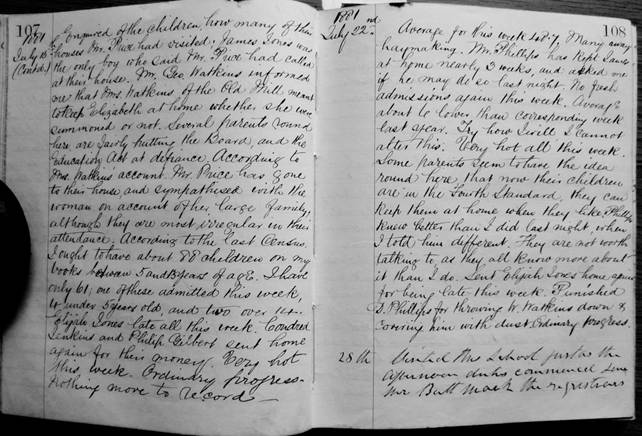 107
1881
July 15
(Contd.)
Enquired of the children, how many of their
houses Mr. Price had visited. James Jones was
the only boy who said Mr. Price had called
at their house. Mr. Geo Watkins informed
me that Mrs. Watkins of the Old Mill meant
to keep Elizabeth at home whether she were
summoned or not. Several parents round
here are fairly putting the Board, and the
Education Act at defiance. According to
Mrs. Watkins account Mr. Price has gone
to their house and sympathised with the
woman on account of her large family,
although they are most irregular in their
attendance. According to the last Census.
I ought to have about 88 children on my
books between 5 and 13 years of age. I have
only 61, one of these admitted this week,
is under 5 years old, and two over 14.
Elijah Jones late all this week.
Jenkins and Philip Gilbert sent home
again for their money. Very hot
this week. Ordinary progress.
Nothing more to record
108
1881
July 22nd
Average for this week 48.7. Many away
haymaking. Mr. Phillips has kept James
at home nearly 3 weeks, and asked me
if he may do so last night. No fresh
admissions again this week. Average
about 6 lower than corresponding week
last year. Try how I will I cannot
alter this. Very hot all this week.
Some parents seem to have the idea
round here, that now their children
are in the Fourth Standard, they can
keep them at home when they like. Phillips
knew better than I did last night, when
I told him different. They are not worth
talking to, as they all know more about
it than I do. Sent Elijah Jones home again
for being late this week. Punished
Phillips for throwing W. Watkins down &
covering him with dust. Ordinary progress.
28th
Visited this School just as the
afternoon duties commenced
Mr Butt the registers